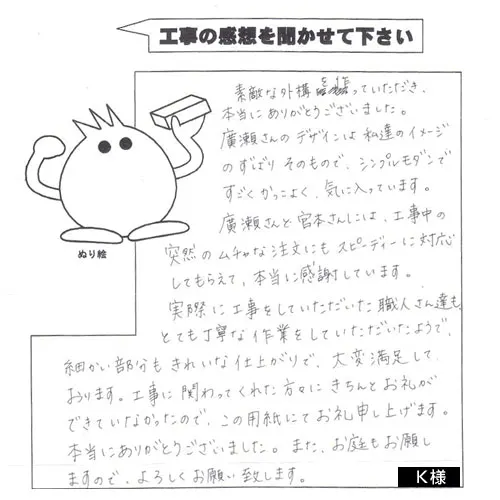 工事の感想を聞かせて下さい
素敵な外構を造っていただき、
本当にありがとうございました。
廣瀬さんのデザインは私達のイメージ
のずばりそのもので、シンプルモダンで
すごくかっこよく、気に入っています。
廣瀬さんと宮本さんには、工事中の
突然のムチャな注文にもスピーディーに対応
してもらえて、本当に感謝しています。
実際に工事をしていただいた職人さん達も、
とても丁寧な作業をしていただいたようで、
細かい部分もきれいな仕上がりで、大変満足して
おります。工事に関わってくれた方々にきちんとお礼が
できていなかったので、この用紙にてお礼申し上げます。
本当にありがとうございました。また、お庭もお願いし
ますので、よろしくお願い致します。
ぬり絵
K様